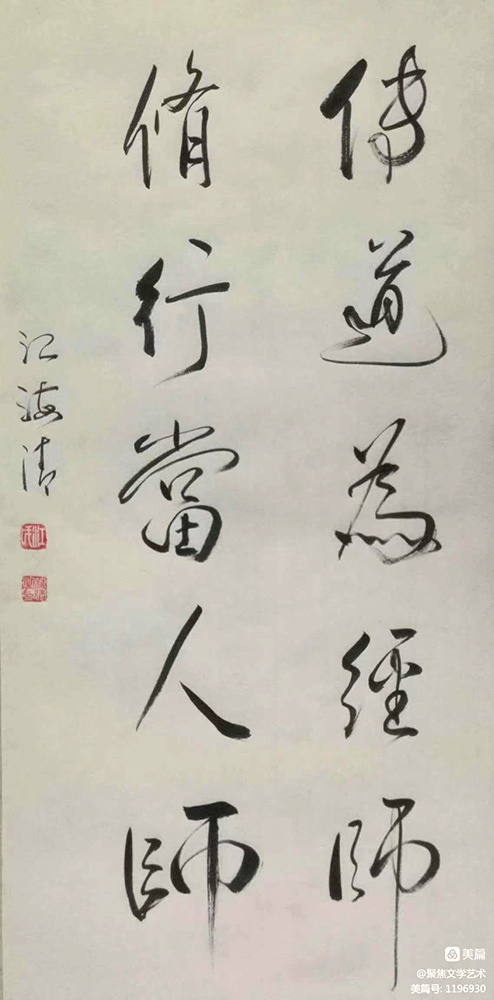 傳道為經師
脩行當人師
江海清
美篇
@聚焦文学艺术
美篇号: 1196930